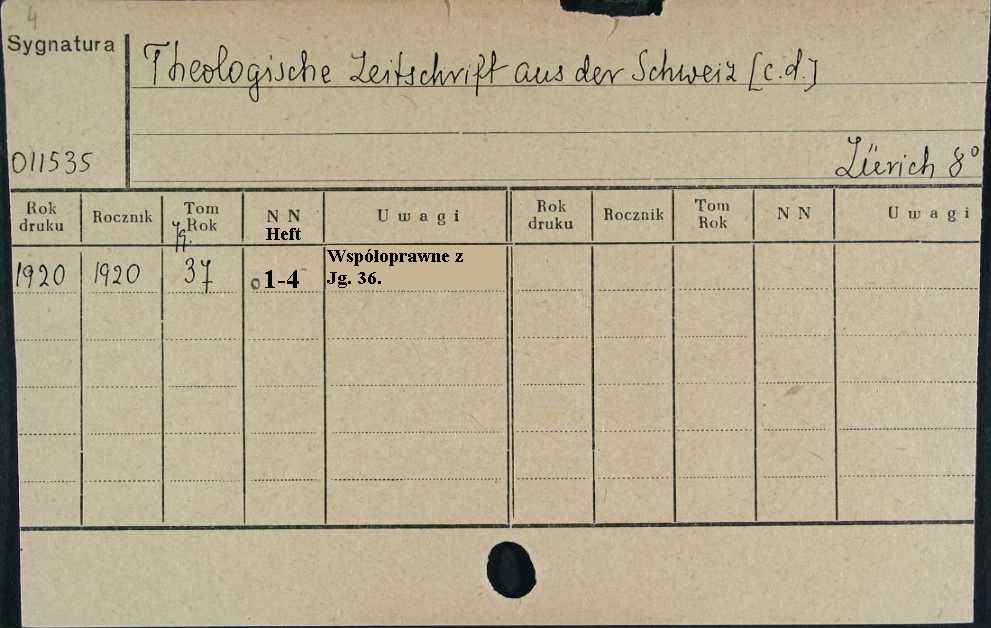 4
Sygnatura
Theologische Zeitschrift aus der Schweiz [c.d.]
011535
Züerich 8°
Rok druku Rocznik Tom Rok N N Uwagi Rok druku Rocznik Tom Rok N N Uwagi
Jg. Heft
1920 1920 37 1-4 Współoprawne z
Jg. 36.